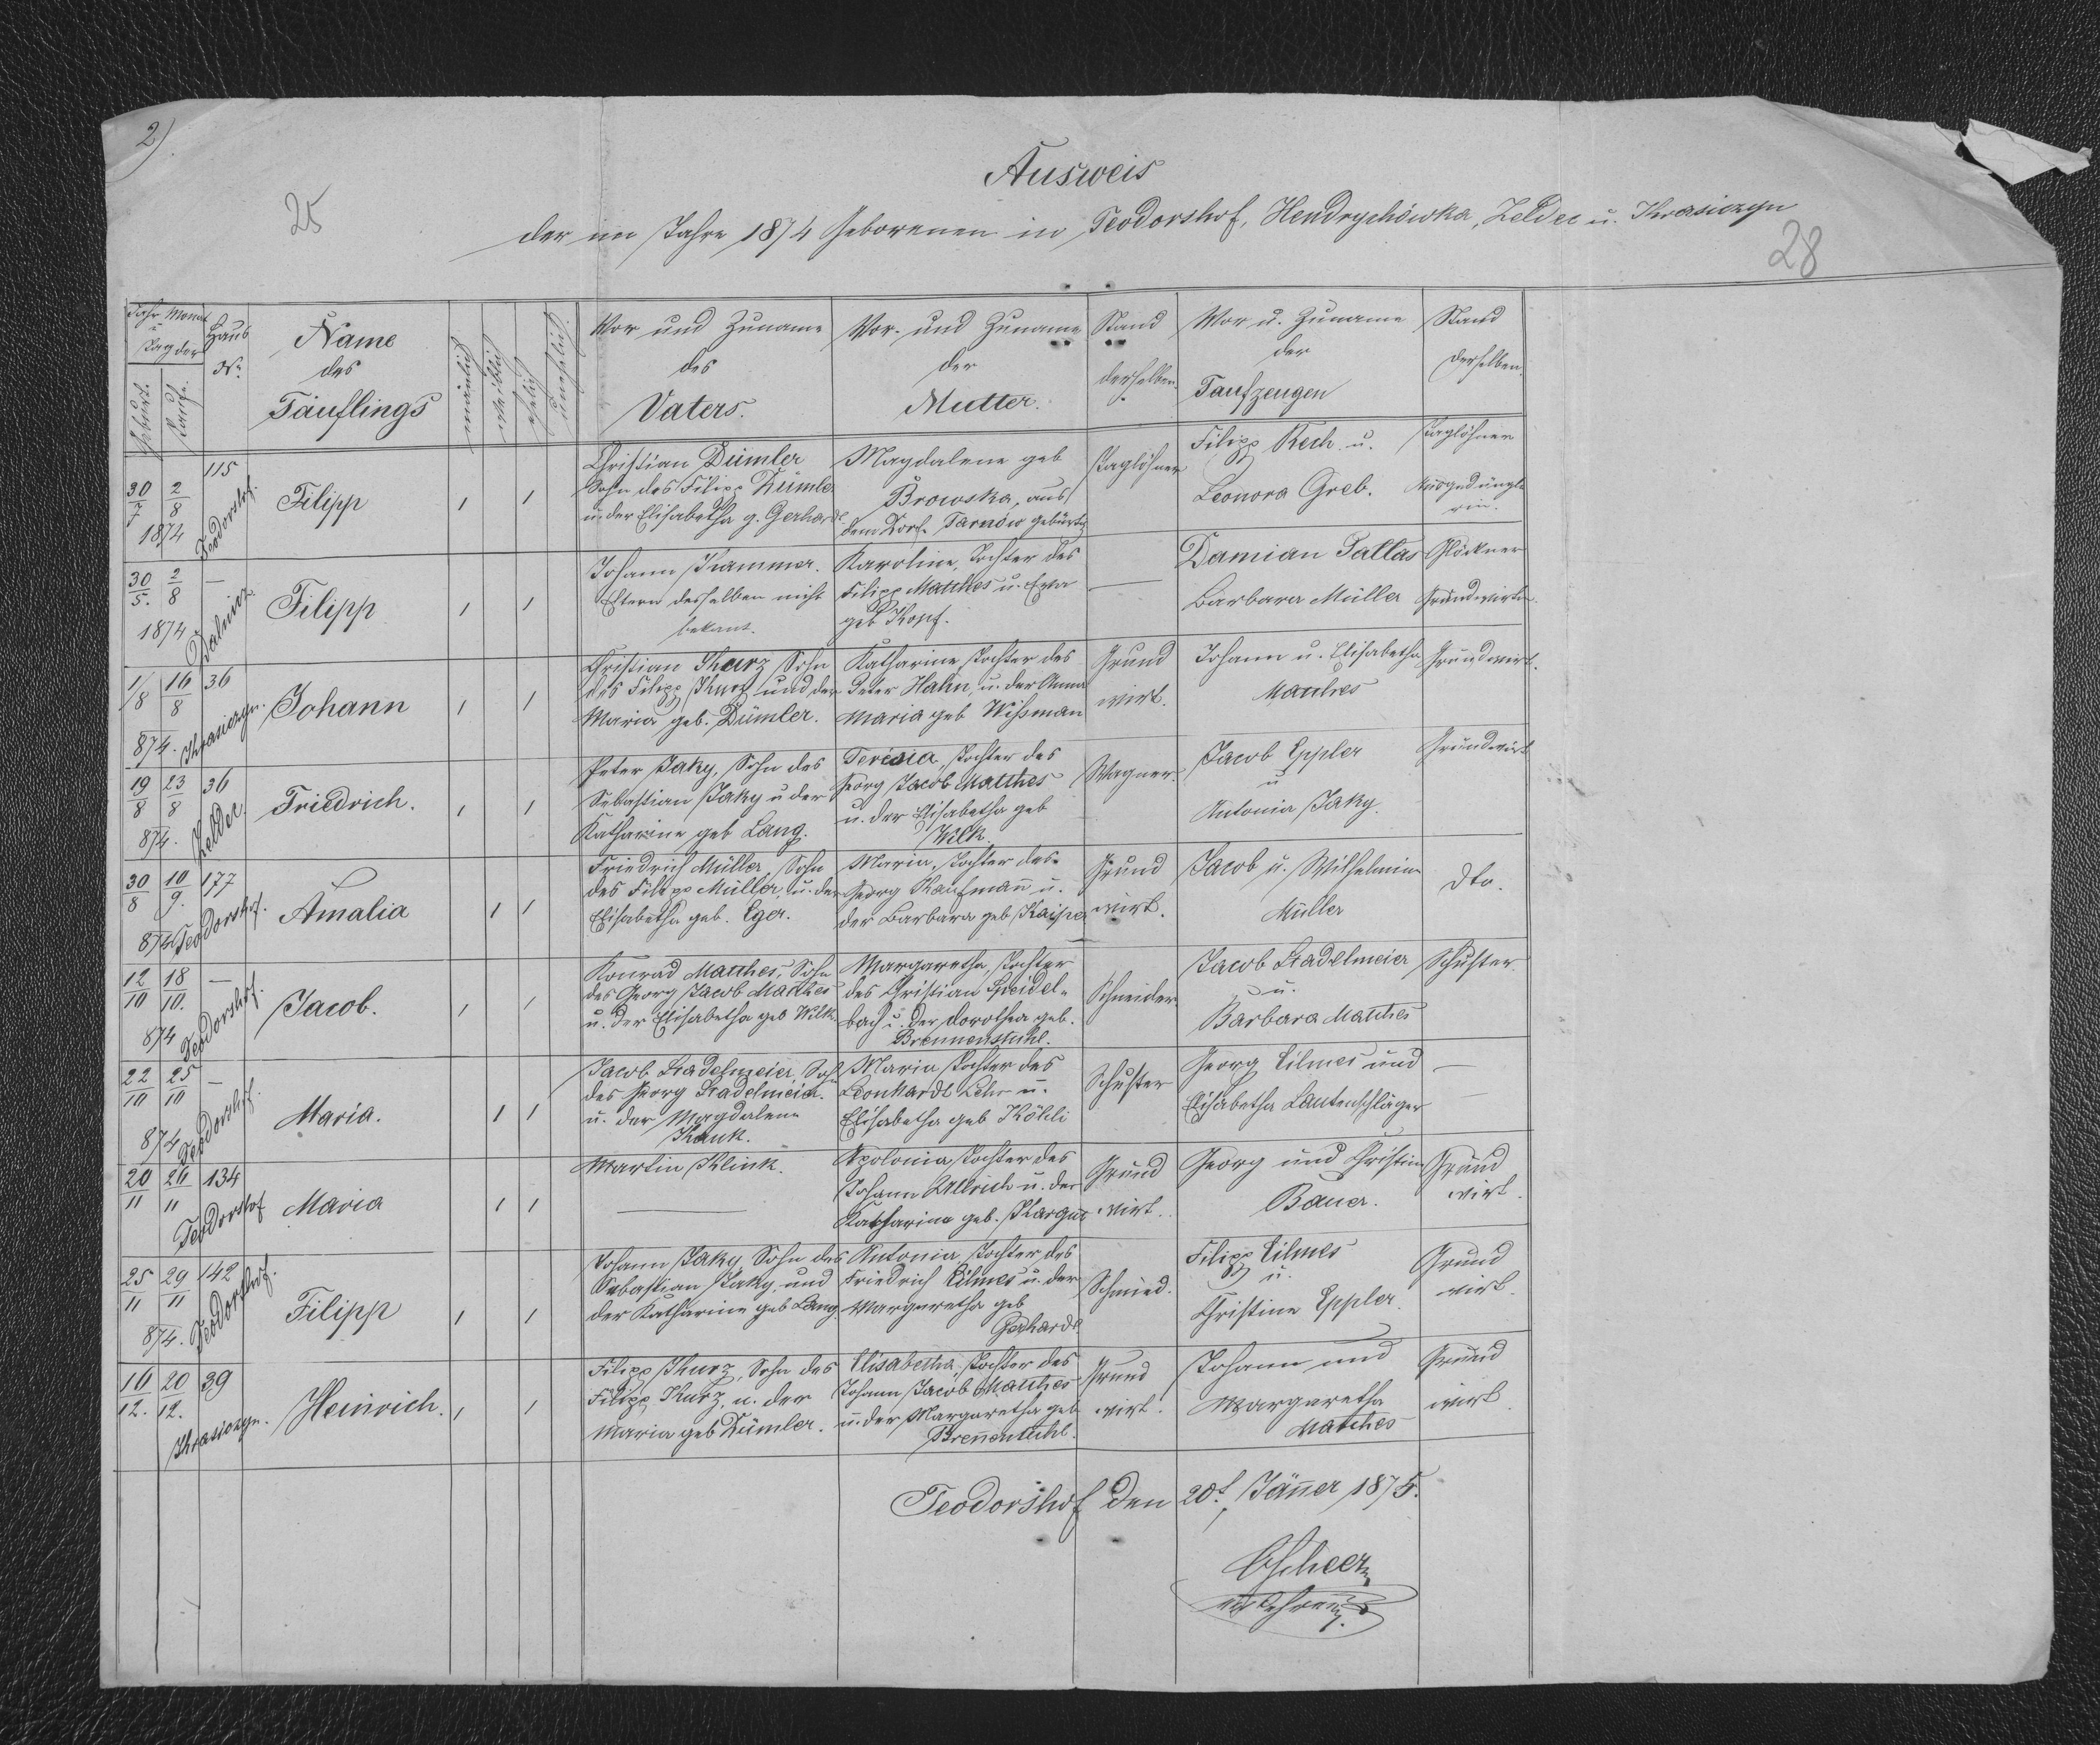 2)
25
Ausweis
der im Jahre 1874 Geborenen in Teodorshof, Hendrychówka, Zeldec u. Krasiczyn
28
Jahr Monat u Tag der
Geburt. Taufe.
Haus Nr.
Name des Täuflings
mänlich
weiblich
ehelich
unehelich.
Vor und Zuname des Vaters.
Vor- und Zuname der Mutter.
Stand derselben.
Vor u. Zuname der Taufzeugen
Stand derselben.
30/7 2/8 1874
115 Teodorshof.
Filipp
1 1
Christian Dümler
Sohn des Filipp Dümler
u. der Elisabetha g. Gerhardt
Magdalena geb
Browska, aus
dem Dorfe Tarnow gebürtig
Taglöhner
Filipp Rech u.
Leonora Greb.
Taglöhner
Ausgedingle
rin.
30/5. 2/8 1874
—
Filipp
1 1
Johann Krammer.
Eltern desselben nicht
bekant.
Karoline, Tochter des
Filipp Matthes u. Eva
geb Kopf.
—
Damian Tallas
Barbara Müller
Glöckner
Grundwirtin.
1/8 16/8 874.
36 Krasiczyn.
Johann
1 1
Christian Kurz Sohn
des Filipp Kurz und der
Maria geb. Dümler.
Katharine, Tochter des
Peter Hahn, u. der Anna
Maria geb Wißman
Grund
wirt.
Johann u. Elisabetha
Matthes
Grundwirt.
19/8 23/8 874.
36 Zeldec
Friedrich.
1 1
Peter Jaky, Sohn des
Sebastian Jaky u der
Katharine geb Lang.
Teresia, Tochter des
Georg Jacob Matthes
u. der Elisabetha geb
Wilk.
Wagner.
Jacob Eppler
u
Antonia Jaky.
Grundwirt
30/8 10/9. 874
177 Teodorshof.
Amalia
1 1
Friedrich Müller, Sohn
des Filipp Müller, u. der
Elisabetha geb. Eger.
Maria, Tochter des
Georg Kaufmañ u.
der Barbara geb Kaiser
Grund
wirt.
Jacob u. Wilhelmine
Müller
dto.
12/10 18/10. 874
— Teodorshof.
Jacob.
1 1
Konrad Matthes, Sohn
des Georg Jacob Matthes
u. der Elisabetha geb Wilk.
Margaretha, Tochter
des Christian Speidel-
bach u. der Dorothea geb.
Brennenstuhl.
Schneider
Jacob Stadelmeier
u.
Barbara Matthes
Schuster.
22/10 25/10 874
— Teodorshof.
Maria.
1 1
Jacob Stadelmeier, Sohn
des Georg Stadelmeier.
u. der Magdalene
Kauk.
Maria Tochter des
Leonhardt Lehr u.
Elisabetha geb Köhli
Schuster
Georg Lilmes und
Elisabetha Lautenschläger
—
—
20/11 26/11
134 Teodorshof
Maria
1 1
Martin Klink.
—
Apolonia Tochter des
Johann Ullrich u. der
Katharine geb.
Grund
wirt.
Georg und Christine
Bauer.
Grund
wirt.
25/11 29/11 874.
142 Teodorshof.
Filipp
1 1
Johann Jaky, Sohn des
Sebastian Jaky, und
der Katharine geb Lang.
Antonia, Tochter des
Friedrich Lilmes u. der
Margaretha geb
Gerhardt
Schmied.
Filipp Lilmes
u.
Christine Eppler.
Grund
wirt.
16/12. 20/12.
39 Krasiczyn.
Heinrich.
1 1
Filipp Kurz, Sohn des
Filipp Kurz, u. der
Maria geb Dümler.
Elisabetha, Tochter des
Johann Jacob Matthes
u. der Margaretha geb
Breñenstuhl.
Grund
wirt.
Johann und
Margaretha
Matthes
Grund
wirt.
Teodorshof den 20t. Jäñer 1875.